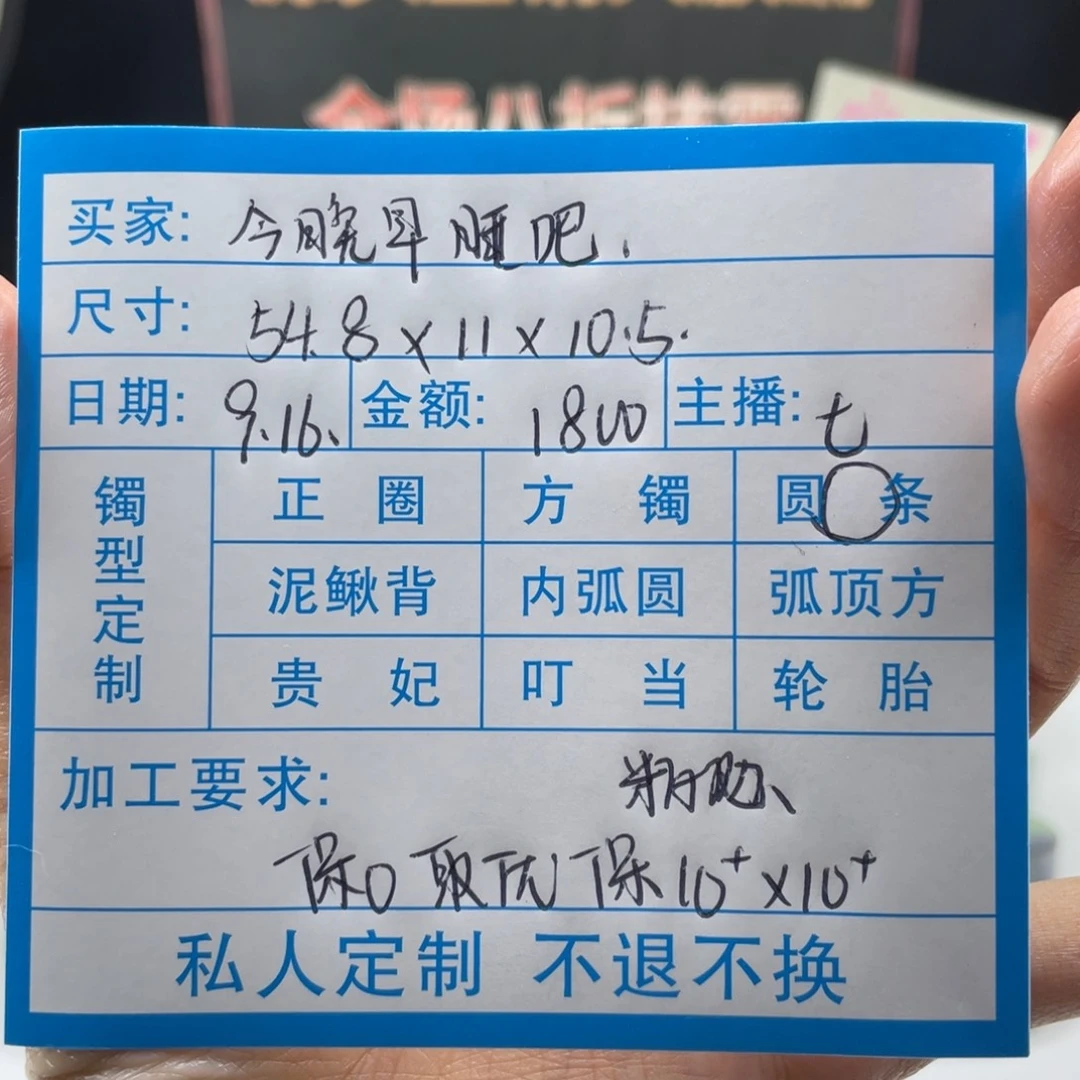 全场八折
买家: 今晚早睡吧.
尺寸: 54.8×11×10.5.
日期: 9.16、 金额: 1800 主播: 七
镯型定制
正圈 方镯 圆条
泥鳅背 内弧圆 弧顶方
贵妃 叮当 轮胎
加工要求:
保口取优保10⁺×10⁺
私人定制 不退不换